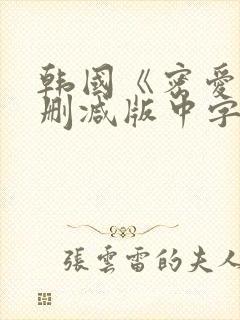 韩國《密爱
删减版中字
張雲雷的夫人